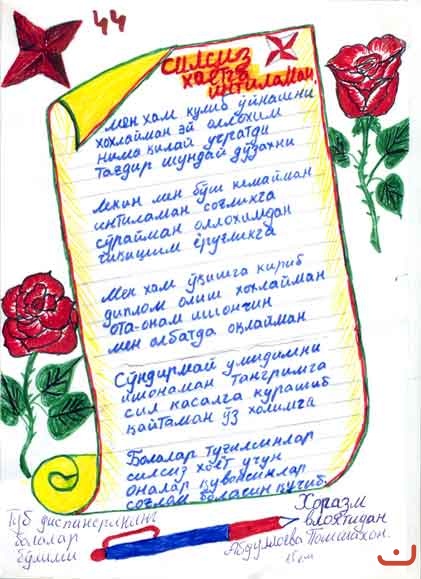 44
СИЛСИЗ
ХАЁТГА
ИНТИЛАМАН.
Мен хам кулиб ўйнашни
хохлайман эй оллохим
нима қилай учратди
тағдир шундай дўзахни
Лекин мен бўш келмайман
интиламан соғликга
сўрайман оллохимдан
чиқишим ёруғликга
Мен хам ўқишга кириб
диплом олиш хохлайман
ота-онам ишончин
мен олбатда оқлайман
Сўндирмай умидимни
ишонаман тангримга
сил касалга курашиб
қайтаман ўз холимга
Болалар туғилсинлар
силсиз хоёт учун
оналар қувонсинлар
соғлом боласин қучиб.
Туб диспансерининг
болалар
бўлими
Хоразм
влоятидан
Абдуллаева
15 ём